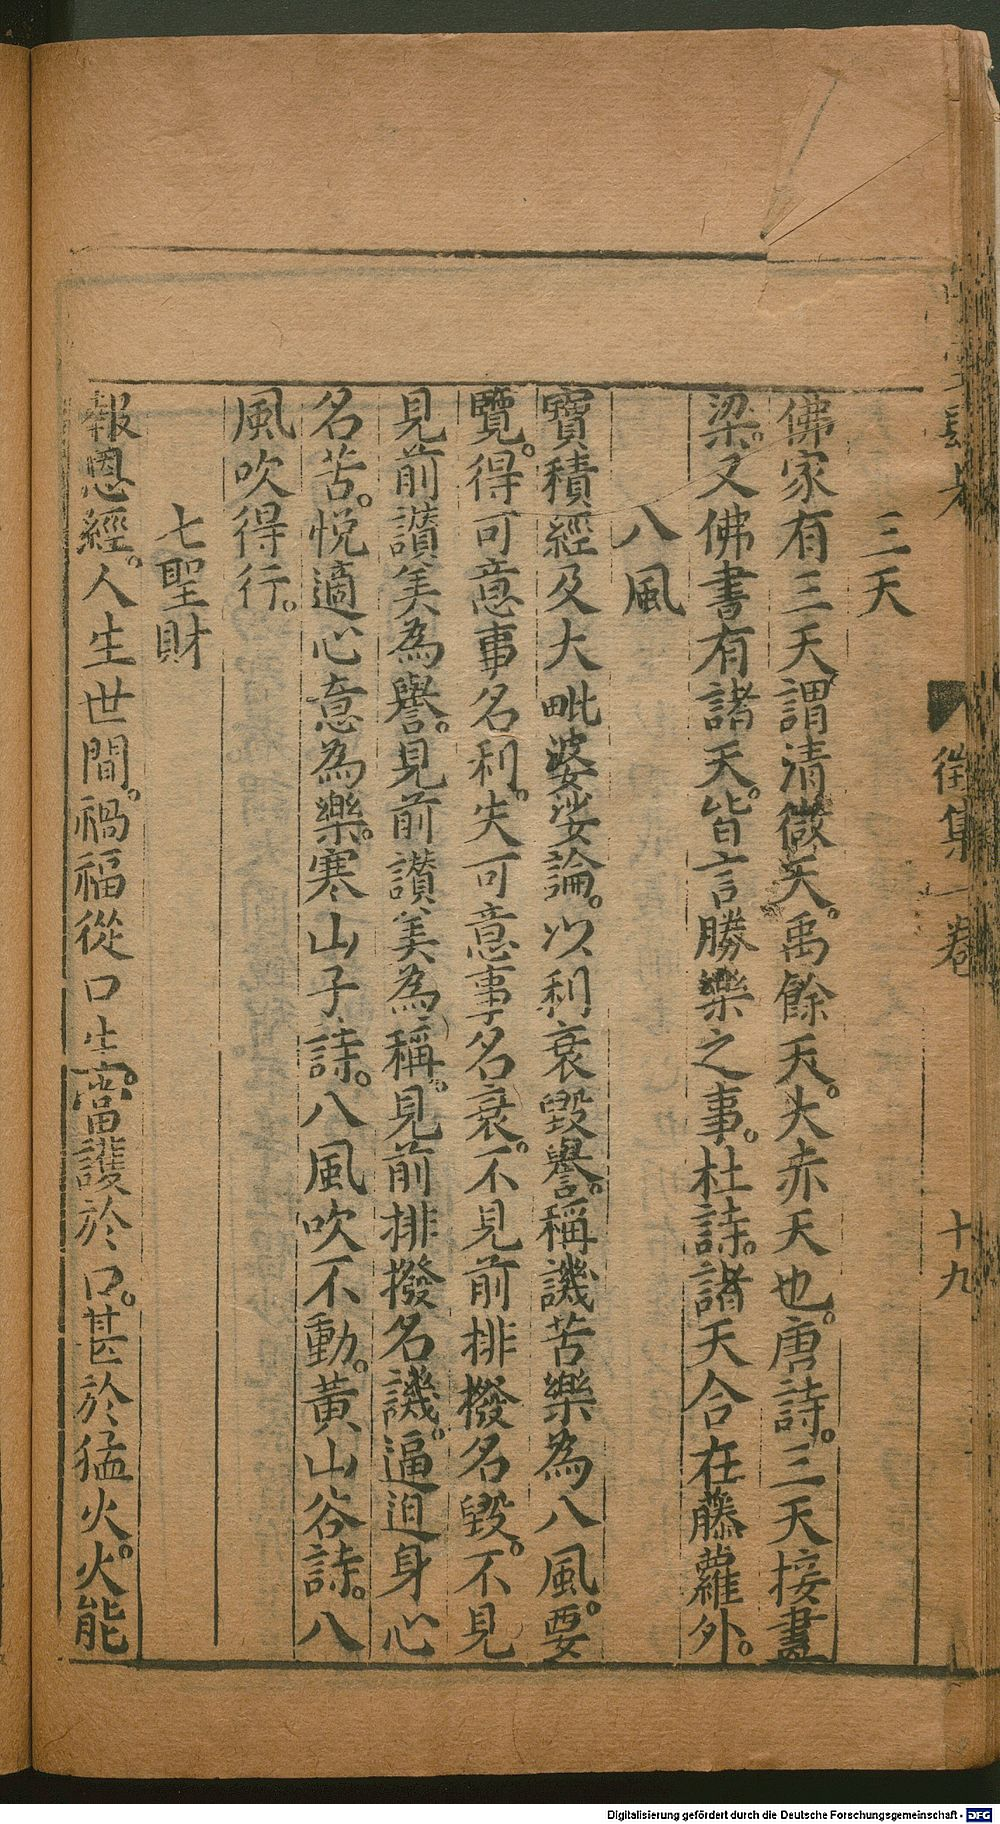 三天
佛家有三天謂清微天。禹餘天。大赤天也。唐詩。三天接畫
梁。又佛書有諸天。皆言勝樂之事。杜詩。諸天合在藤蘿外。
八風
寶積經及大毗婆娑論。以利衰毀譽。稱譏苦樂為八風。要
覽。得可意事名利。失可意事名衰。不見前排撥名毀。不見
見前讃美為譽。見前讃美為稱。見前排撥名譏。逼迫身心
名苦。悅適心意為樂。寒山子詩。八風吹不動。黃山谷詩。八
風吹得行。
七聖財
報恩經。人生世間。禍福從口生。當護於口。甚於猛火。火能
衍集一卷
十九
Digitalisierung gefördert durch die Deutsche Forschungsgemeinschaft - DFG